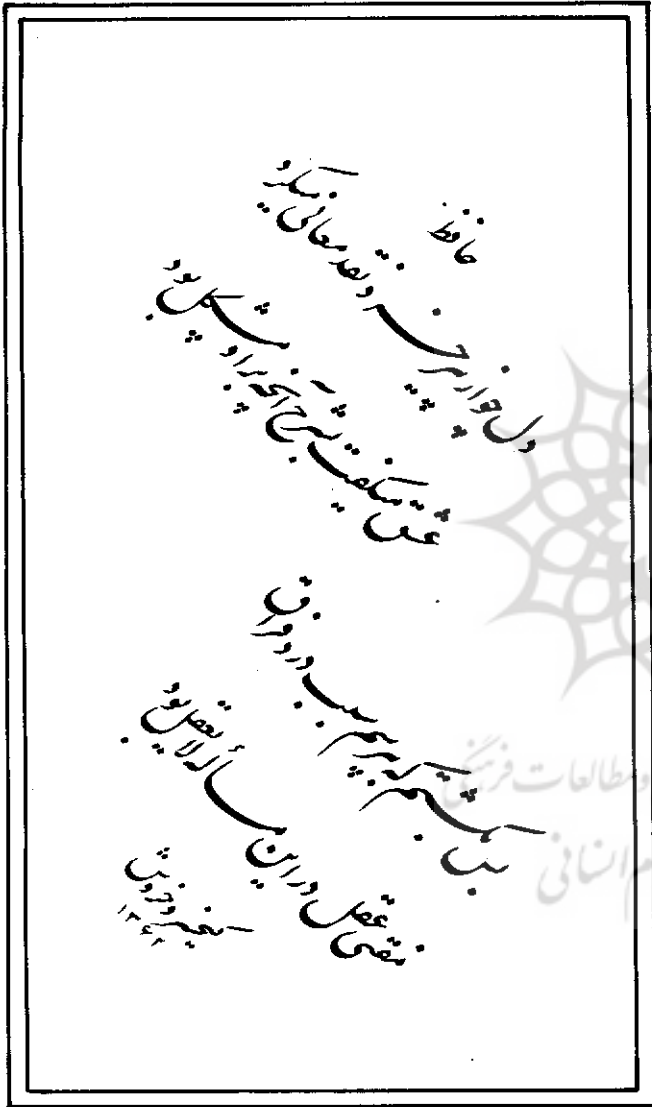 حافظ
دل چو از پیر خرد نقد معانی میکرد
عشق میگفت بشرح آنچه براو مشکل بود
بس بگشتم که بپرسم سبب درد فراق
مفتی عقل در این مسأله لایعقل بود
کیخسرو خروش
۱۳۶۲
ومطالعات فرهنگی
م انسانی